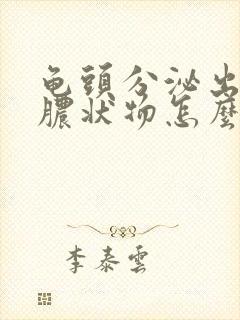 龟頭分泌出
膿状物怎麼
李泰雲